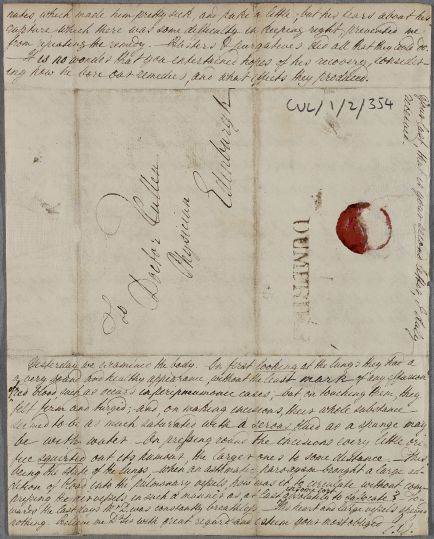 nutes which made him pretty sick, and puke a little; but his fears about his
rupture which there was some difficulty in keeping right, prevented me
from repeating the remedy. Blisters & purgatives did all that they could do.
It is no wonder that you entertained hopes of his recovery, consider-
ing how he bore our remedies, and what effects they produced.
CUL/1/2/354
To
Doctor Cullen
Physician
Edenburgh
DUMFRIES
your last, that is your second letter, I duly
received.
Yesterday we examined the body. On first looking at the lungs they had a
a very sound and healthy appearance, without the least mark of any effusion
of red blood such as occurs in peripneumonic cases; but on touching them, they
felt firm and turgid; and on making incisions, their whole substance
seemed to be as much saturated with a serous fluid as a spunge may
be with water. On pressing round the incisions every little ori-
fice squirted out its humour, the larger ones to some distance. This
being the state of the lungs, when an asthmatic paroxysm brought a large
of blood into the pulmonary vessels, how was it to circulate without com-
pressing the air vessels in such a manner as, or at last to suffocate? To-
wards the last days Mr was constantly breathless. The heart and large vessels
nothing. believe me Dr Sir with great regard and esteem your most obliged